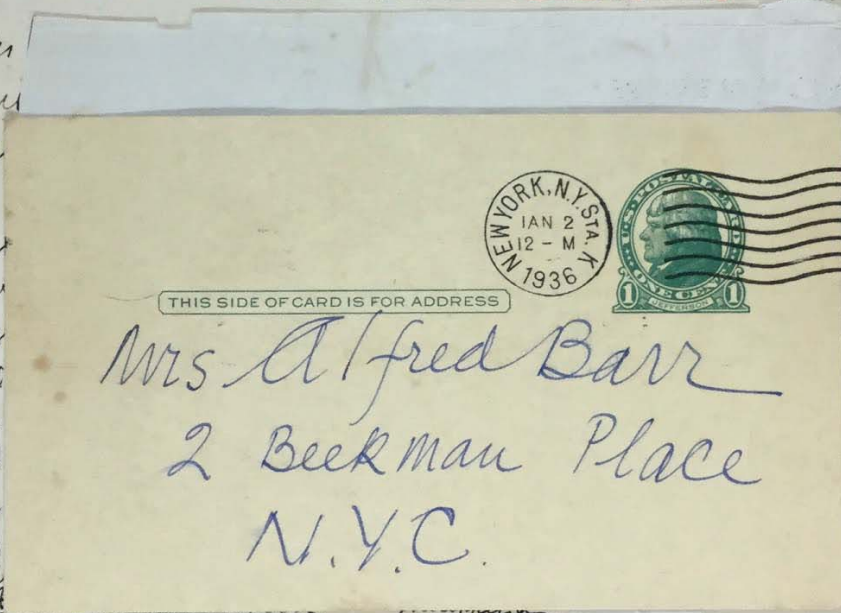 NEW YORK, N.Y. STA. K
JAN 2
12 - M
1936
U.S. POSTAL CARD
ONE CENT
1 JEFFERSON 1
THIS SIDE OF CARD IS FOR ADDRESS
Mrs Alfred Barr
2 Beekman Place
N.Y.C.